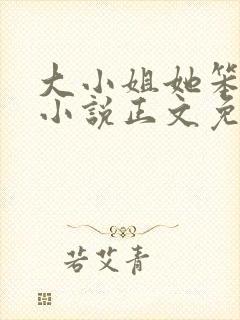 大小姐她笨
小说正文免
若艾青